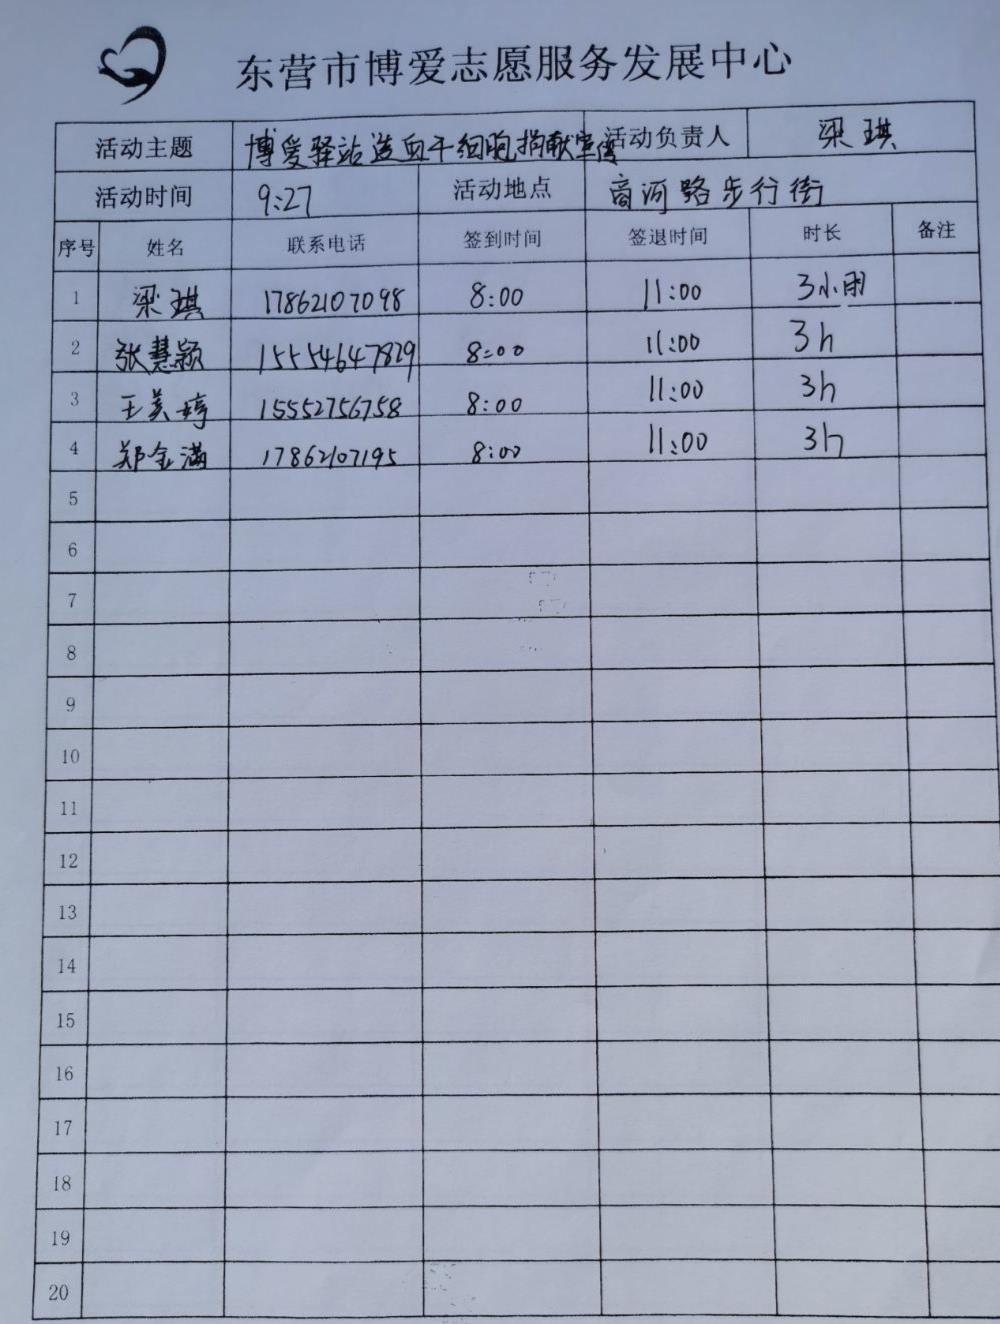 东营市博爱志愿服务发展中心
活动主题 博爱驿站造血干细胞捐献宣传 活动负责人 梁琪
活动时间 9:27 活动地点 商河路步行街
序号 姓名 联系电话 签到时间 签退时间 时长 备注
1 梁琪 17862107098 8:00 11:00 3小时
2 张慧颖 15554647829 8:00 11:00 3h
3 王美婷 15552756758 8:00 11:00 3h
4 郑金满 17862107195 8:00 11:00 3h
5
6
7
8
9
10
11
12
13
14
15
16
17
18
19
20